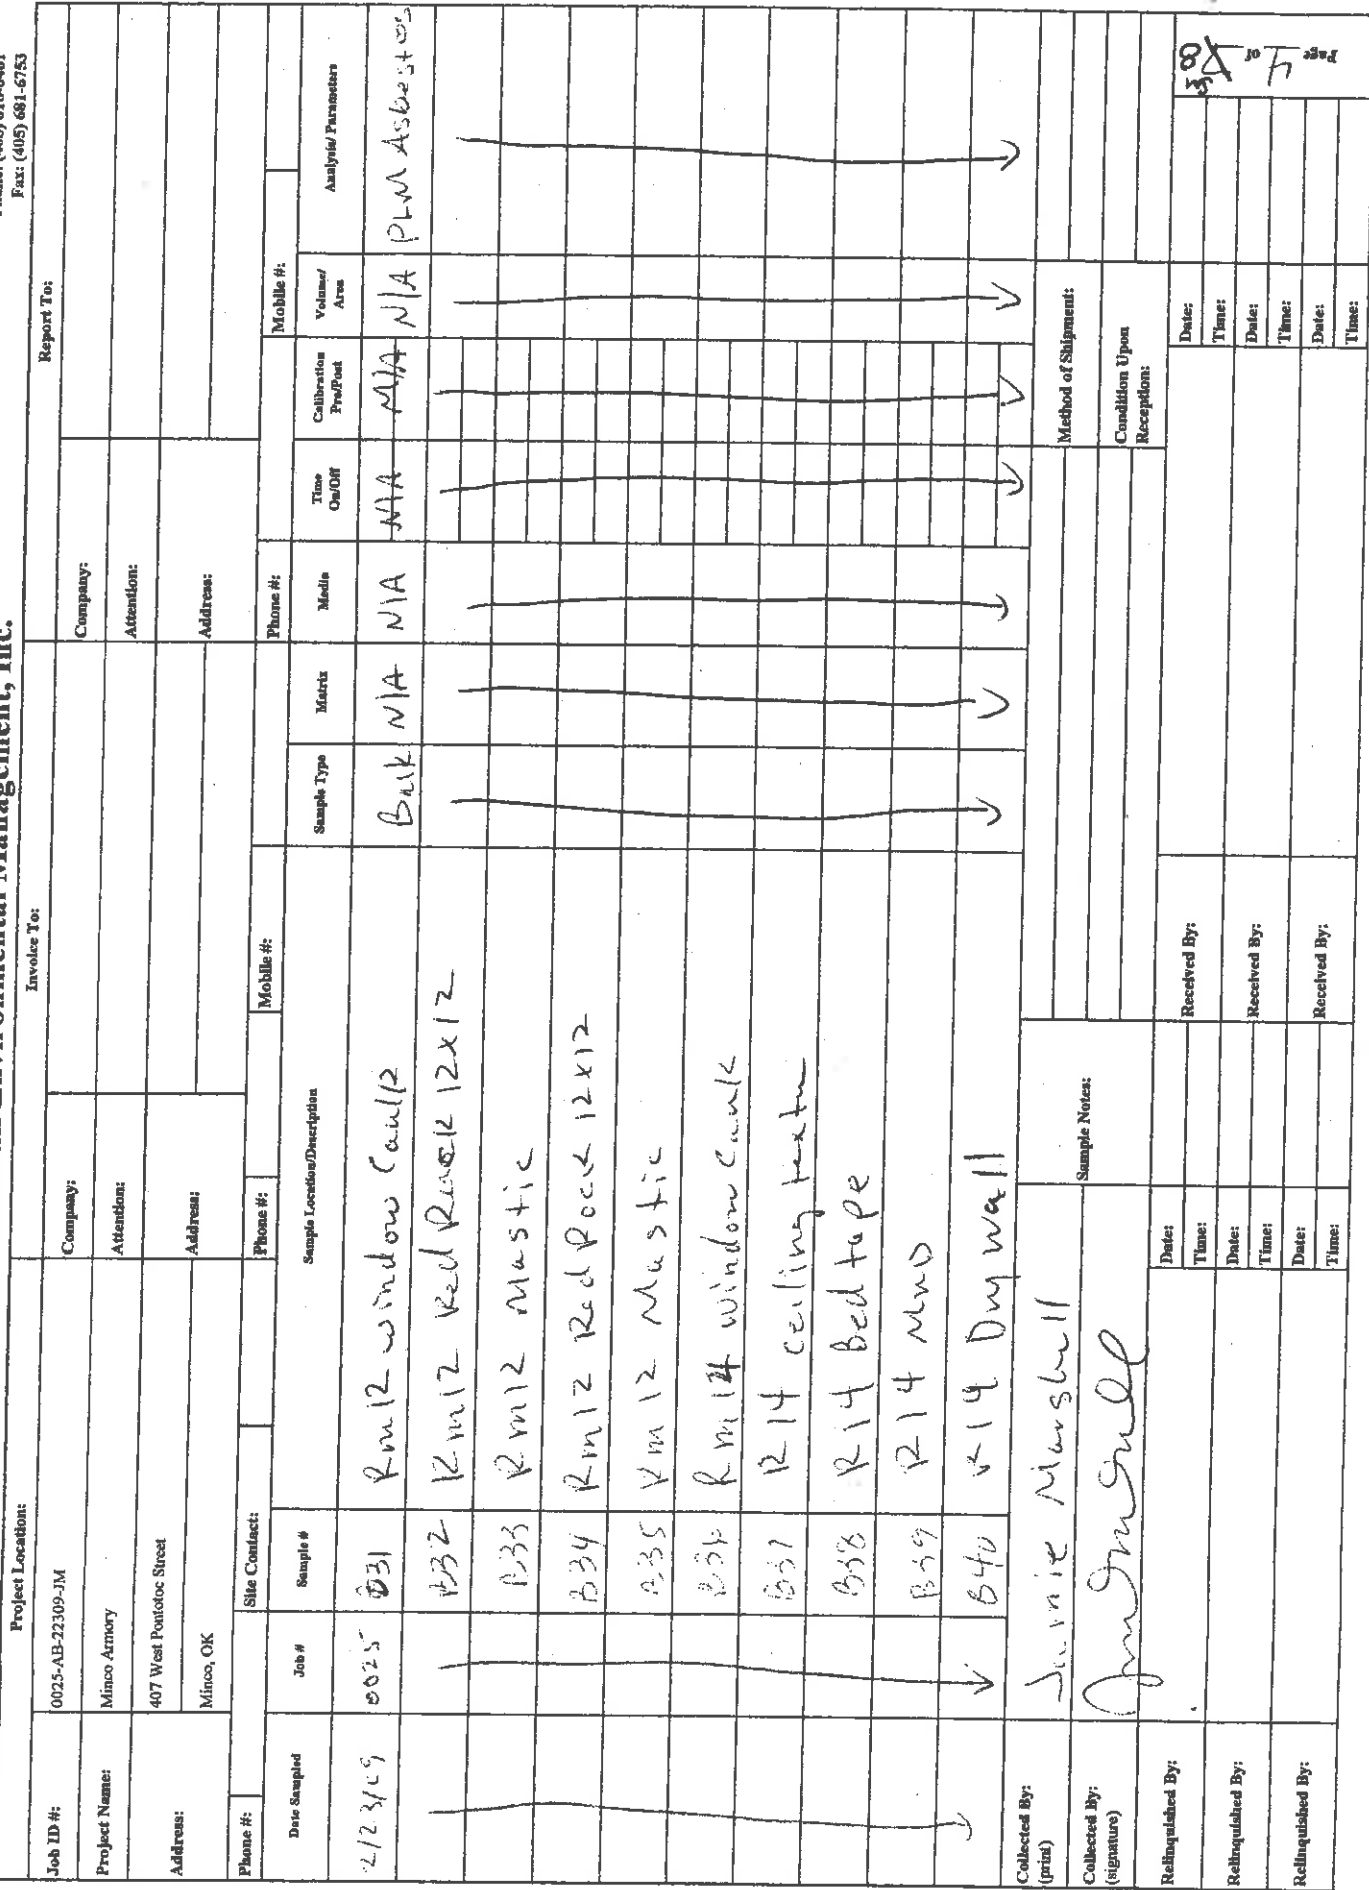 Environmental Management, Inc.
Fax: (405) 681-6753
Project Location:
Invoice To:
Report To:
Job ID #: 0025-AB-22309-JM
Company:
Company:
Project Name: Minco Armory
Attention:
Attention:
Address: 407 West Pontotoc Street
Minco, OK
Address:
Address:
Phone #:
Site Contact:
Phone #:
Mobile #:
Phone #:
Mobile #:
Date Sampled Job # Sample # Sample Location/Description Sample Type Matrix Media Time On/Off Calibration Pre/Post Volume/Area Analysis/Parameters
2/23/09 0025 B31 Rm12 window Caulk Bulk N/A N/A N/A N/A N/A PLM Asbestos
B32 Rm12 Red Rock 12x12
B33 Rm12 Mastic
B34 Rm12 Red Rock 12x12
B35 Rm 12 Mastic
B36 Rm 14 window Caulk
B37 R14 ceiling
B38 R14 Bed tape
B39 R14 Mud
B40 R14 Drywall
Collected By: (print) Jaimie Marshall
Sample Notes:
Method of Shipment:
Collected By: (signature)
Condition Upon Reception:
Relinquished By: Date: Time: Received By: Date: Time:
Relinquished By: Date: Time: Received By: Date: Time:
Relinquished By: Date: Time: Received By: Date: Time:
Page 4 of 8